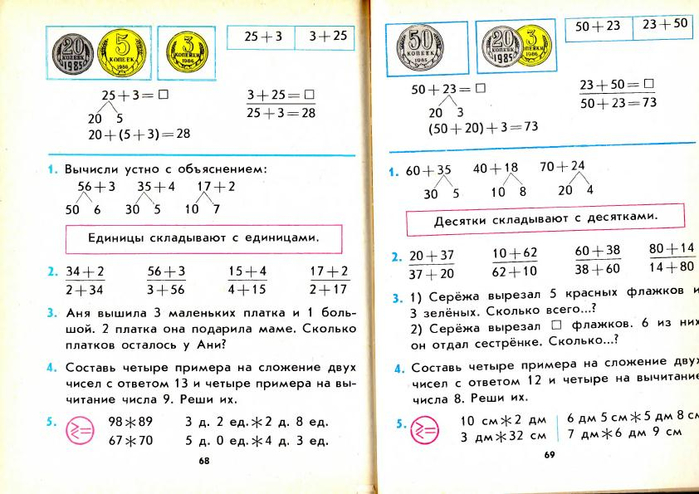 20 КОПЕЕК 1985
5 КОПЕЕК 1986
3 КОПЕЙКИ 1986
25+3 3+25
25+3=□
20 5
20+(5+3)=28
3+25=□
25+3=28
1. Вычисли устно с объяснением:
56+3 35+4 17+2
50 6 30 5 10 7
Единицы складывают с единицами.
2. 34+2 56+3 15+4 17+2
2+34 3+56 4+15 2+17
3. Аня вышила 3 маленьких платка и 1 боль-
шой. 2 платка она подарила маме. Сколько
платков осталось у Ани?
4. Составь четыре примера на сложение двух
чисел с ответом 13 и четыре примера на вы-
читание числа 9. Реши их.
5. >
<
= 98*89 3 д. 2 ед.*2 д. 8 ед.
67*70 5 д. 0 ед.*4 д. 3 ед.
68
50 КОПЕЕК 1985
20 КОПЕЕК 1985
3 КОПЕЙКИ 1986
50+23 23+50
50+23=□
20 3
(50+20)+3=73
23+50=□
50+23=73
1. 60+35 40+18 70+24
30 5 10 8 20 4
Десятки складывают с десятками.
2. 20+37 10+62 60+38 80+14
37+20 62+10 38+60 14+80
3. 1) Серёжа вырезал 5 красных флажков и
3 зелёных. Сколько всего...?
2) Серёжа вырезал □ флажков. 6 из них
он отдал сестрёнке. Сколько...?
4. Составь четыре примера на сложение двух
чисел с ответом 12 и четыре на вычитание
числа 8. Реши их.
5. >
<
= 10 см*2 дм 6 дм 5 см*5 дм 8 см
3 дм*32 см 7 дм*6 дм 9 см
69